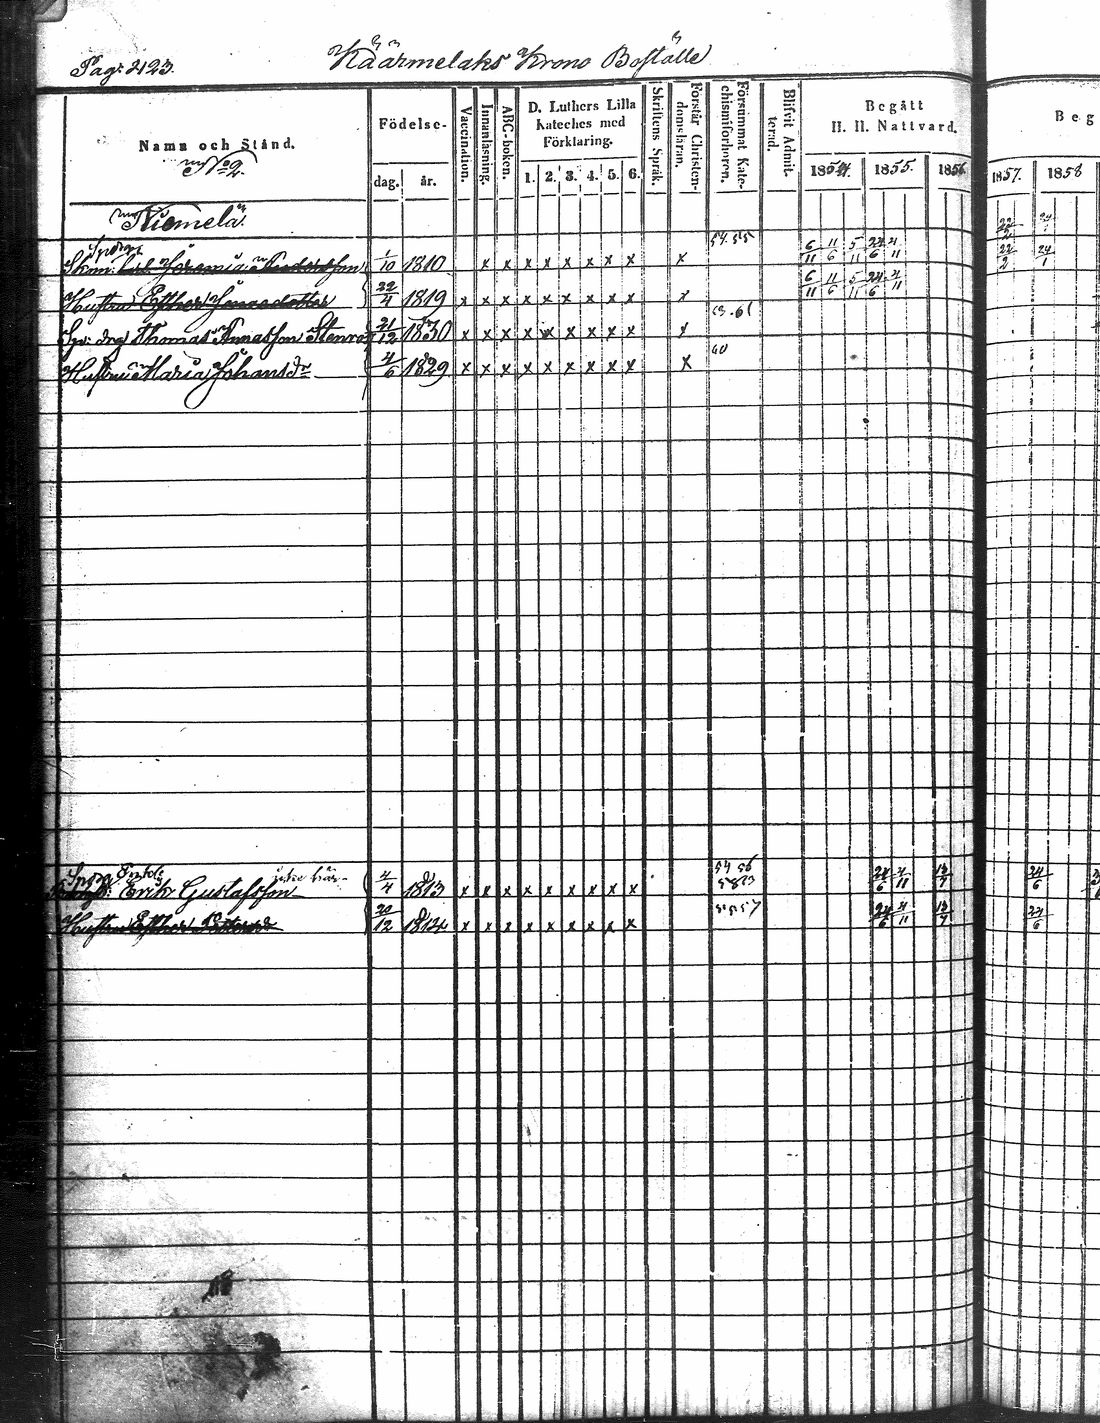 Pag: 423. Käärmelaks Krono Boställe
Namn och Stånd. Födelse- Vaccination. Innanläsning. ABC-boken. D. Luthers Lilla Kateches med Förklaring. Skriftens Språk. Förstår Christendomsläran. Försummat Katechismiförhören. Blifvit Admitterad. Begått H. H. Nattvard. Beg
No 2.
dag. år. 1. 2. 3. 4. 5. 6. 1854. 1855. 1856 1857. 1858
Niemelä 22/2 24/1
54.55
Skom: Jeremias Andersson 1/10 1810 x x x x x x x x x 6/11 11/6 5/11 24/6 4/11 22/2 24/1
Hustru Esther 22/4 1819 x x x x x x x x x x 6/11 11/6 5/11 24/6 4/11
Thomas Thomasson Stenroos 21/12 1830 x x x x x x x x x x
60
Hustru Maria Johansdr 4/6 1829 x x x x x x x x x x
54 56
Erik Gustafsson 4/4 1813 x x x x x x x x x 24/6 4/11 13/7 24/6
Hustru Esther 20/12 1814 x x x x x x x x x 24/6 4/11 13/7 24/6